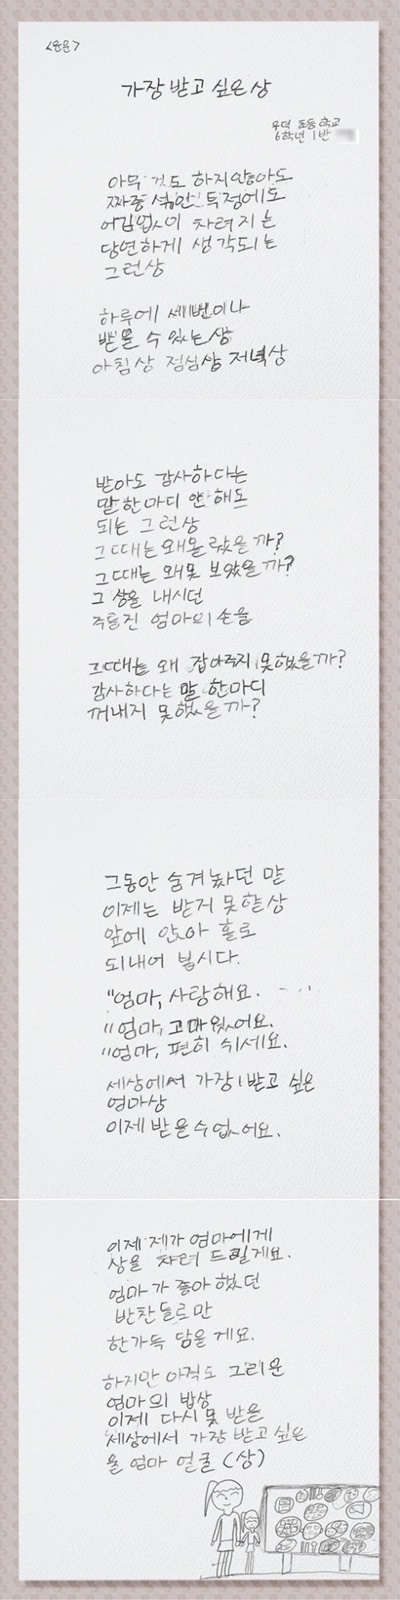 <운문>
가장 받고 싶은 상
우덕 초등학교
6학년 1반
아무 것도 하지않아도
짜증 섞인 투정에도
어김없이 차려지는
당연하게 생각되는
그런상
하루에 세번이나
받을 수 있는 상
아침상 점심상 저녁상
받아도 감사하다는
말한마디 안해도
되는 그런상
그때는 왜몰랐을까?
그때는 왜못 보았을까?
그 상을 내시던
주름진 엄마의 손을
그때는 왜 잡아주지 못했을까?
감사하다는 말 한마디
꺼내지 못했을까?
그동안 숨겨놨던 말
이제는 받지 못할상
앞에 앉아 홀로
되내어 봅시다.
"엄마, 사랑해요.
"엄마, 고마웠어요.
"엄마, 편히 쉬세요.
세상에서 가장 받고 싶은
엄마상
이제 받을수없어요.
이제 제가 엄마에게
상을 차려 드릴게요.
엄마가 좋아했던
반찬들로만
한가득 담을게요.
하지만 아직도 그리운
엄마의 밥상
이제 다시 못 받을
세상에서 가장 받고 싶은
울 엄마 얼굴 (상)